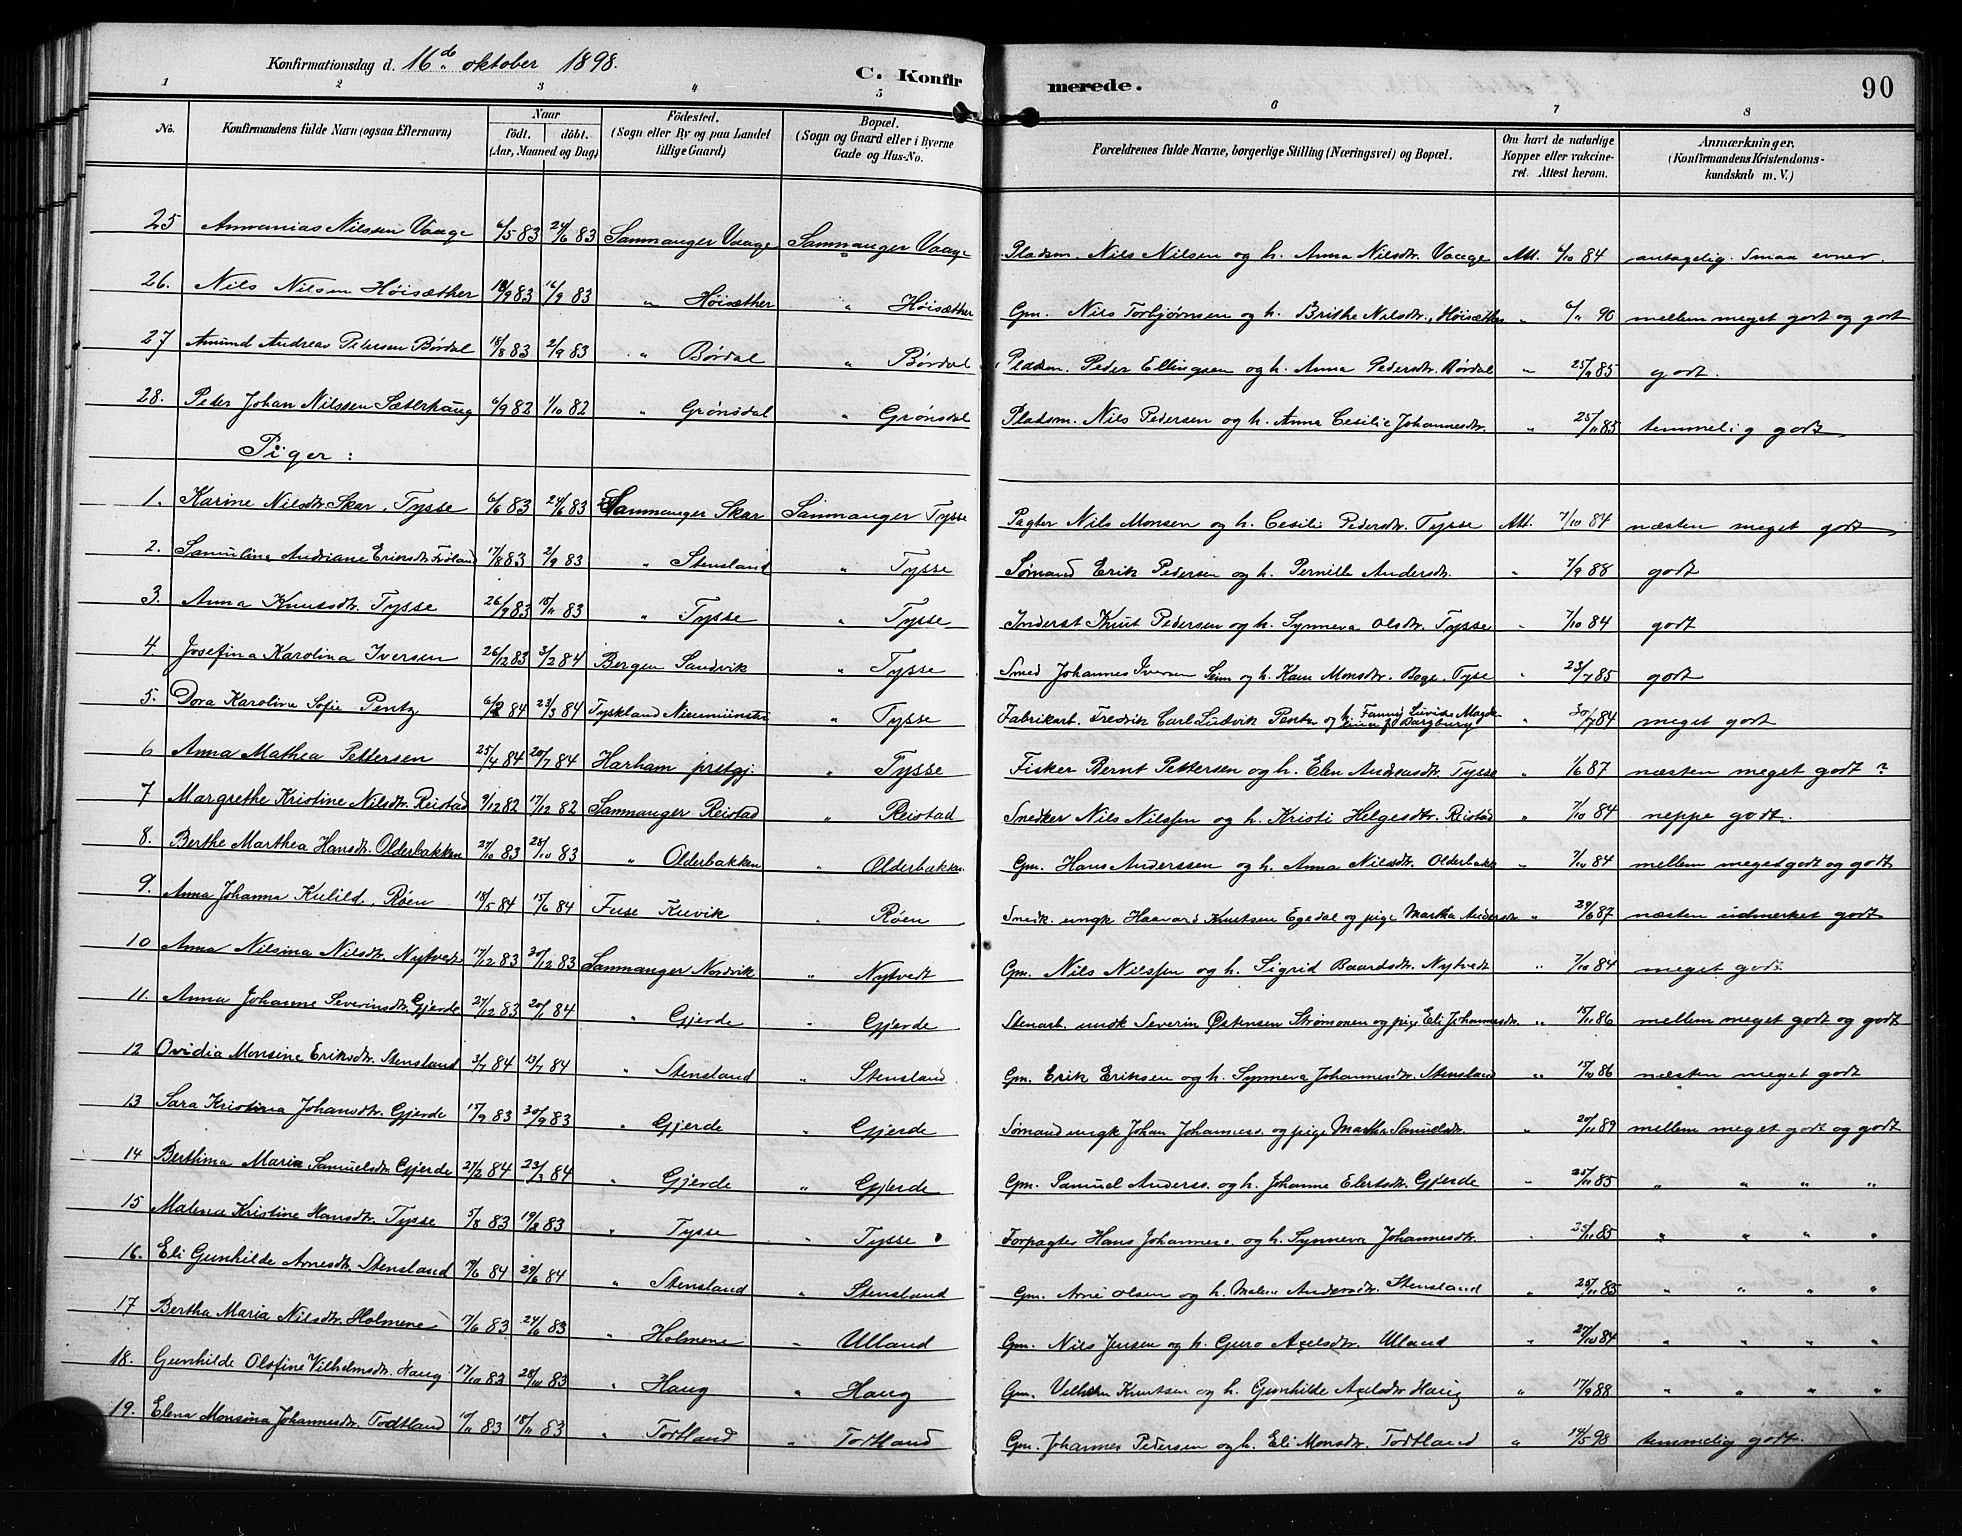 Konfirmationsdag d. 16de oktober 1898.
C. Konfirmerede.
90
1 2 3 4 5 6 7 8
No. Konfirmandens fulde Navn (ogsaa Efternavn) Naar født. døbt. (Aar, Maaned og Dag) Fødested. (Sogn eller By og paa Landet tillige Gaard) Bopæl. (Sogn og Gaard eller i Byerne Gade og Hus-No. Forældrenes fulde Navne, borgerlige Stilling (Næringsvei) og Bopæl. Om havt de naturlige Kopper eller vakcineret. Attest herom. Anmærkninger. (Konfirmandens Kristendomskundskab m. V.)
25 Annanias Nilssen Vaage 6/5 83 24/6 83 Sammanger Vaage Sammanger Vaage Pladsm. Nils Nilsen og h. Anna Nilsdtr. Vaage Att. 6/10 84 antagelig. Smaa evner.
26. Nils Nilsen Høisæther 83 16/9 83 " Høisæther " Høisæther Gm. Nils Torbjørnsen og h. Brithe Nilsdtr., Høisæther " 6/11 90 mellem meget godt og godt
27 Amund Andreas Petersen Børdal 18/8 83 2/9 83 " Børdal " Børdal Pladsm. Peder Ellingsen og h. Anna Pedersdtr. Børdal " 85 godt.
28. Peter Johan Nilssen Sæterhaug 6/9 82 1/10 82 " Grønsdal " Grønsdal Pladsm. Nils Pedersen og h. Anna Cesilie Johannesdtr. " 25/11 85 temmelig godt
Piger:
1. Karine Nilsdtr. Skar, Tysse 6/6 83 24/6 83 Sammanger Skar Sammanger Tysse Pagter Nils Monsen og h. Cesili Pedersdtr. Tysse Att. 7/10 84 næsten meget godt
2. Samuline Andriane Eriksdtr. 17/8 83 2/9 83 " Stensland " Tysse Sømand Erik Pedersen og h. Pernille Andersdtr. " 7/9 88 godt
3. Anna Knutsdtr. Tysse 26/9 83 18/11 83 " Tysse " Tysse Inderst Knut Pedersen og h. Synneva Olsdtr. Tysse " 7/10 84 godt
4. Josefina Karolina Iversen 26/12 83 3/2 84 Bergen Sandvik " Tysse Smed Johannes Iversen Seim og h. Kari Monsdtr. Boge. Tyse " 23/7 85 godt
5. Dora Karoline Sofie Pentz 6/2 84 23/3 84 Tyskland Nieumünster " Tysse Fabrikarb. Fredrik Carl Ludvik Pentz og h. Fanny Luvise Magda " 30/7 84 meget godt
6 Anna Mathea Pettersen 25/4 84 20/7 84 Harham prstgj. " Tysse Fisker Bernt Pettersen og h. Elen Andreasdtr. Tysse " 1/6 87 næsten meget godt?
7 Margrethe Kristine Nilsdtr. Reistad 9/12 82 17/12 82 Sammanger Reistad " Reistad Snedker Nils Nilssen og h. Kristi Helgesdtr. Reistad " 7/10 84 neppe godt.
8. Berthe Marthea Hansdtr. Olderbakken 27/10 83 28/10 83 " Olderbakken " Olderbakken Gm. Hans Anderssen og h. Anna Nilsdtr. Olderbakk " 7/10 84 mellem meget godt og godt
9. Anna Johanna Kulild., Røen 18/5 84 15/6 84 Fuse " Røen Snedk. ungk Haavard Knutsen Egedal og pige Martha Andersdtr " 29/6 87 næsten udmerket godt
10 Anna Nilsina Nilsdtr. Nytvedt 17/12 83 30/12 83 Sammanger Nordvik " Nytvedt Gm. Nils Nilssen og h. Sigrid Baardsdtr. Nytvedt " 7/10 84 meget godt
11. Anna Johanne Severinsdtr. Gjerde 27/12 83 20/1 84 " Gjerde " Gjerde Stenarb. undk Severin Østensen Strømonen og pige Eli Johannesdtr. " 15/11 86 mellem meget godt og godt
12 Ovidia Monsine Eriksdtr. Stensland 3/7 84 13/7 84 " Stensland " Stensland. Gm. Erik Eriksen og h. Synneva Johannesdtr. Stensland " 86 næsten meget godt
13 Sara Kristina Johansdtr. Gjerde 15/9 83 30/9 83 " Gjerde " Gjerde Sømand ungk Johan Johanness. og pige Martha Samuelsdtr. " 20/11 89 mellem meget godt og godt
14 Berthina Maria Samuelsdtr. Gjerde 27/2 84 23/3 84 " Gjerde " Gjerde Gm. Samuel Anderss. og h. Johanne Elertsdtr. Gjerde " 25/11 85 " " " "
15 Malena Kristine Hansdtr. Tysse 5/8 83 83 " Tysse " Tysse Forpagter Hans Johannes. og h. Synneva Johannesdtr. " 25/11 85 " " " "
16. Eli Gunhilde Arnesdtr. Stensland 84 29/6 84 " Stensland " Stensland Gm. Arne Olsen og h. Malene Andersdtr. Stensland " 25/11 85 " " " "
17 Bertha Maria Nilsdtr. Holmene 7/6 83 24/6 83 " Holmene " Ulland Gm. Nils Jensen og h. Guro Axelsdtr. Ulland " 27/10 84 " " " "
18. Gunhilde Olsfine Vilhelmsdtr. Haug 17/10 83 28/10 83 " Haug " Haug Gm. Vilhelm Knutsen og h. Gunhilde Axelsdtr Haug " 17/9 88 " " " "
19. Elena Monsina Johannesdtr. Todtland 83 18/11 83 " Todtland " Todtland Gm. Johannes Pedersen og h. Eli Monsdtr. Todtland " 19/5 98 temmelig godt.